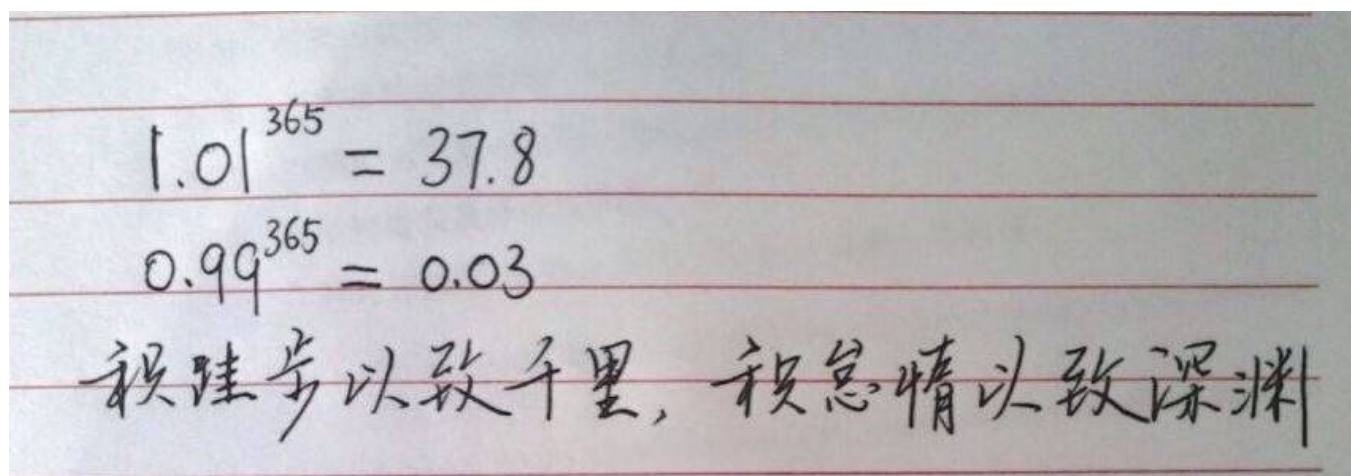 1.01^365 = 37.8
0.99^365 = 0.03
积跬步以致千里, 积怠惰以致深渊